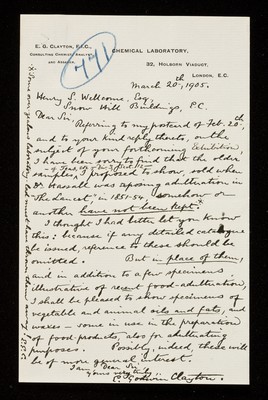 E. G. CLAYTON, F.I.C.,
CONSULTING CHEMIST, ANALYST,
AND ASSAYER.
771
CHEMICAL LABORATORY,
32, HOLBORN VIADUCT,
LONDON, E.C.
March 20th, 1905.
Henry S. Wellcome, Esq.
Snow Hill Buildings, E.C.
Dear Sir,
Referring to my postcard of Feb. 20th,
and to your kind reply thereto, on the
subject of your forthcoming Exhibition,
I have been sorry to find that the older
samples, I proposed to show, sold when
Dr. Hassall was exposing adulteration in
"The Lancet", in 1851-54, somehow or
another have not been kept.*
I thought I had better let you know
this, because if any detailed catalogue
be issued, reference to these should be
omitted. But in place of them,
and in addition to a few specimens
illustrative of recent food-adulteration,
I shall be pleased to show specimens of
vegetable and animal oils and fats, and
waxes – some in use in the preparation
of food products, also for adulterating
purposes. Possibly, indeed, these will
be of more general interest.
I am, Dear Sir,
Yours very truly,
E. Godwin Clayton.